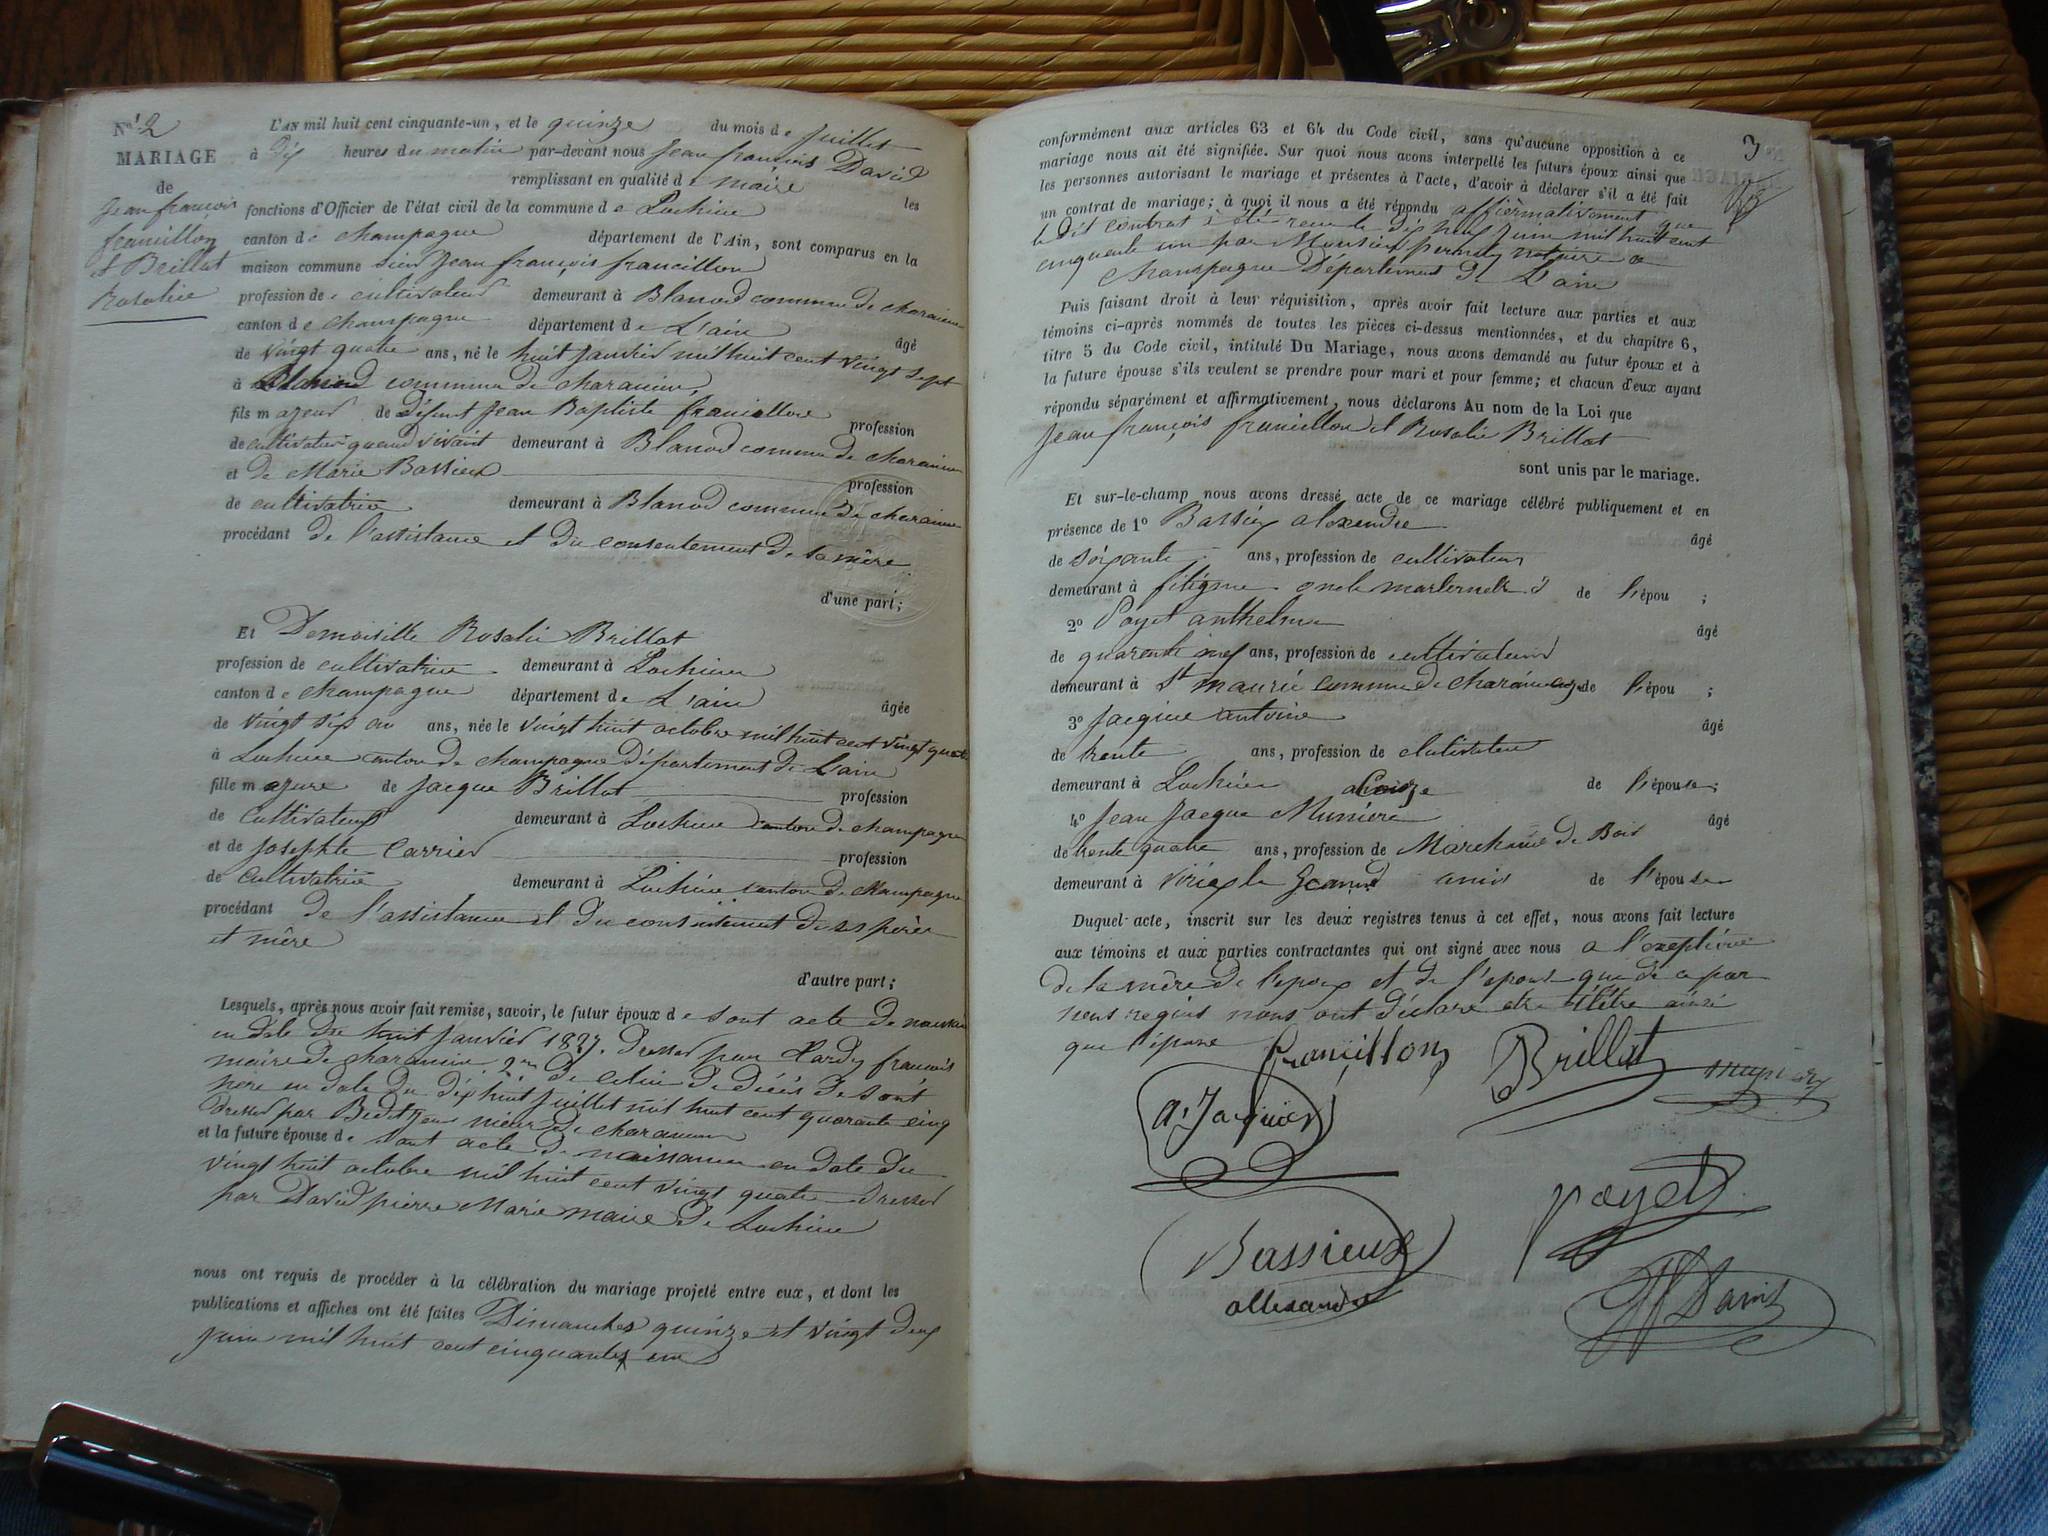 N° 2
MARIAGE
de
Jean françois
francillon
et Brillat
Rosalie
L'AN mil huit cent cinquante-un, et le quinze du mois de Juillet
à dix heures du matin par-devant nous Jean françois David
remplissant en qualité de maire les
fonctions d'Officier de l'état civil de la commune de Lochieu
canton de champagne département de l'Ain, sont comparus en la
maison commune sieur Jean françois francillon
profession de cultivateur demeurant à Blanod commune de charancin
canton de champagne département de L'ain âgé
de vingt quatre ans, né le huit Janvier mil huit cent vingt sept
à Blanod commune de charancin,
fils majeur de défunt Jean Baptiste francillon profession
de cultivateur quand vivant demeurant à Blanod commune de charancin
et de Marie Bassieux profession
de cultivatrice demeurant à Blanod commune de charancin
procédant de l'assistance et du consentement de sa mère
d'une part;
Et Demoiselle Rosalie Brillat
profession de cultivatrice demeurant à Lochieu
canton de champagne département de L'ain âgée
de vingt six an ans, née le vingt huit octobre mil huit cent vingt quatre
à Lochieu canton de champagne département de L'ain
fille majure de Jacque Brillat profession
de cultivateur demeurant à Lochieu canton de champagne
et de Josephte Carrier profession
de cultivatrice demeurant à Lochieu canton de champagne
procédant de l'assistance et du consentement de ses pères
et mère
d'autre part;
Lesquels, après nous avoir fait remise, savoir, le futur époux de sont acte de
en date du huit Janvier 1827. dresser par hardy françois
maire de charancin. 2 de celui de décès de sont
père en date du dix huit Juillet mil huit cent quarante cinq
dresser par maire de charancin
et la future épouse de sont acte de naissance en date du
vingt huit octobre mil huit cent vingt quatre dresser
par David pierre Marie maire de Lochieu
nous ont requis de procéder à la célébration du mariage projeté entre eux, et dont les
publications et affiches ont été faites Dimanches quinze et vingt deux
Juin mil huit cent cinquante un
3
conformément aux articles 63 et 64 du Code civil, sans qu'aucune opposition à ce
mariage nous ait été signifiée. Sur quoi nous avons interpellé les futurs époux ainsi que
les personnes autorisant le mariage et présentes à l'acte, d'avoir à déclarer s'il a été fait
un contrat de mariage; à quoi il nous a été répondu affirmativement que
le dit contrat à été recu le dix neuf Juin mil huit cent
cinquante un par Monsieur notaire a
champagne Département de L'ain
Puis faisant droit à leur réquisition, après avoir fait lecture aux parties et aux
témoins ci-après nommés de toutes les pièces ci-dessus mentionnées, et du chapitre 6,
titre 5 du Code civil, intitulé Du Mariage, nous avons demandé au futur époux et à
la future épouse s'ils veulent se prendre pour mari et pour femme; et chacun d'eux ayant
répondu séparément et affirmativement, nous déclarons Au nom de la Loi que
Jean françois francillon et Rosalie Brillat
sont unis par le mariage.
Et sur-le-champ nous avons dressé acte de ce mariage célébré publiquement et en
présence de 1° Bassieux alexendre âgé
de soixante ans, profession de cultivateur
demeurant à fitigneu oncle de l'épou ;
2° Payet anthelme âgé
de quarente neuf ans, profession de cultivateur
demeurant à St maurice commune de charancin de l'épou ;
3° Jacquier antoine âgé
de trente ans, profession de clutivateur
demeurant à Lochieu de l'épouse;
4° Jean Jacque Munière âgé
de trente quatre ans, profession de Marchand de Bois
demeurant à virieu le Grand amis de l'épouse
Duquel acte, inscrit sur les deux registres tenus à cet effet, nous avons fait lecture
aux témoins et aux parties contractantes qui ont signé avec nous a l'exeption
de la mère de l'époux et de l'épouse que de ce par
nous requis nous ont déclaré illétré ainsi
que l'épouse
francillon Brillat
A. Jacquier
Payet
Bassieux
allexandre
JF David